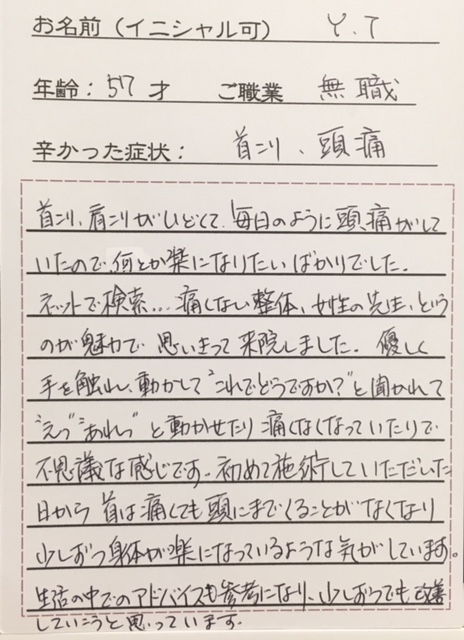 お名前（イニシャル可） Y.T
年齢：57才 ご職業 無職
辛かった症状： 首こり、頭痛
首こり、肩こりがひどくて、毎日のように頭痛がして
いたので、何とか楽になりたいばかりでした。
ネットで検索...痛くない整体、女性の先生、という
のが魅力で思いきって来院しました。優しく
手を触れ、動かして"これでどうですか?"と聞かれて
"えっ""あれっ"と動かせたり痛くなくなっていたりで
不思議な感じです。初めて施術していただいた
日から首は痛くても頭にまでくることがなくなり
少しずつ身体が楽になっているような気がしています。
生活の中でのアドバイスも参考になり、少しずつでも改善
していこうと思っています。